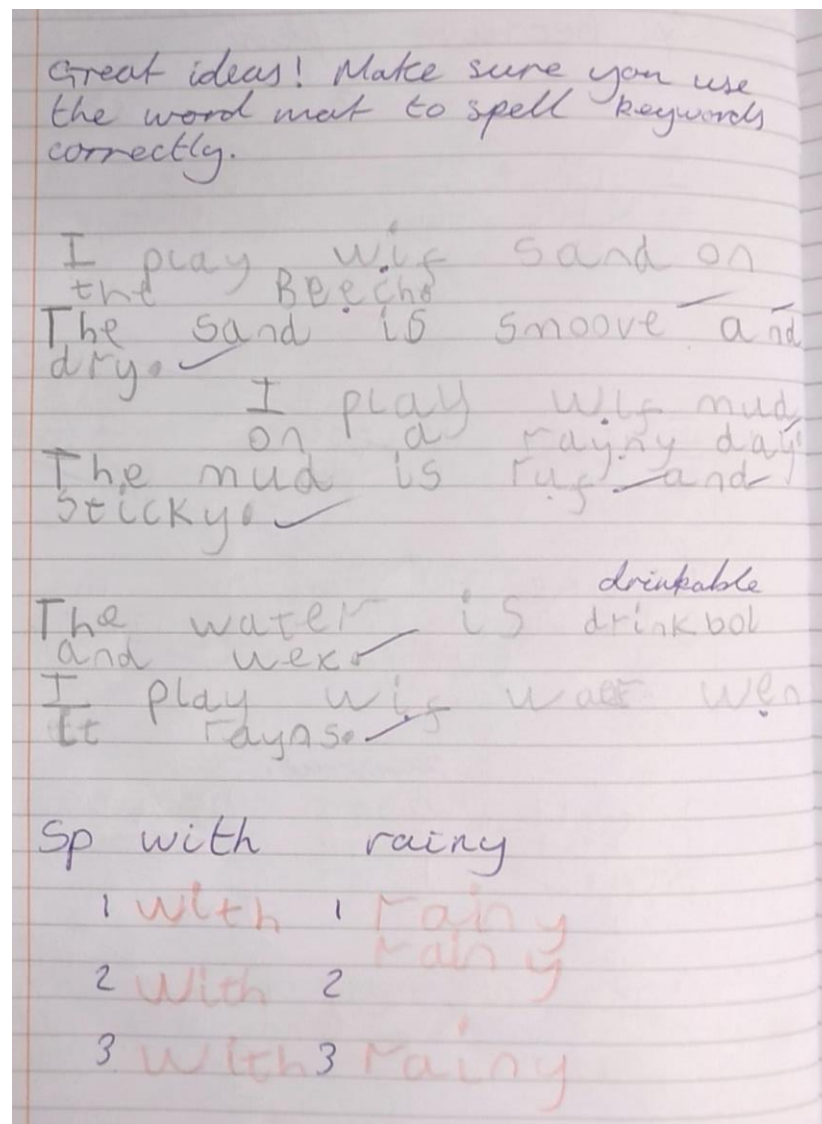 Great ideas! Make sure you use
the word mat to spell keywords
correctly.
I play wif sand on
the Beech
The sand is smoove and
dry.
I play wif mud
on a rayny day
The mud is ruf and
sticky.
drinkable
The water is drinkbol
and wex.
I play wif waer wen
it rayns.
Sp with rainy
1 with 1 rainy
rainy
2 with 2
3 with 3 rainy